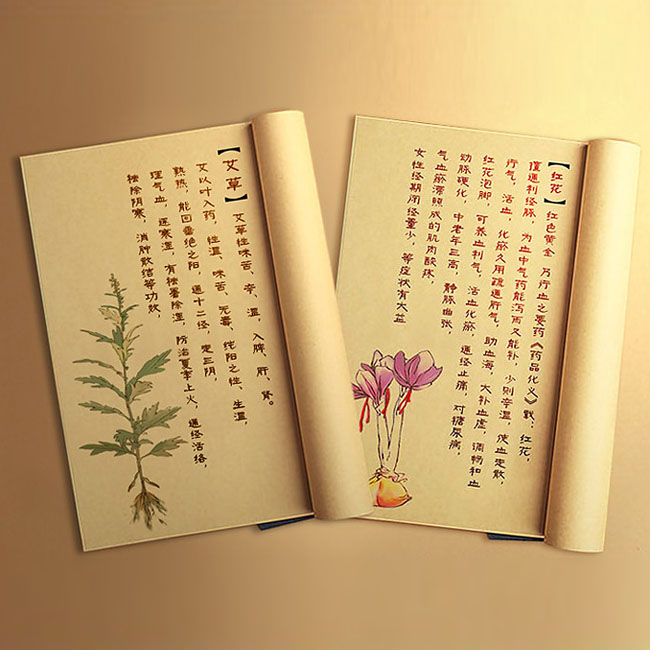 【艾草】
艾草性味苦、辛、温，入脾、肝、肾。
艾以叶入药，性温、味苦、无毒、纯阳之性、生温，
熟热，能回垂绝之阳，通十二经，走三阴，
理气血，逐寒湿，有祛暑除湿，防治夏季上火，通经活络，
祛除阴寒，消肿散结等功效，
【红花】红色黄金 乃行血之要药《药品化义》载：红花，
通利经脉，为血中气药能泻而又能补，少则辛温，使血走散，
行气，活血，化瘀久用疏通肝气，助血海，大补血虚，调畅和血
红花泡脚，可养血利气，活血化瘀，通经止痛，对糖尿病，
动脉硬化，中老年三高，静脉曲张，
气血瘀滞照成的肌肉酸麻，
女性经期闭经量少，等症状有大益